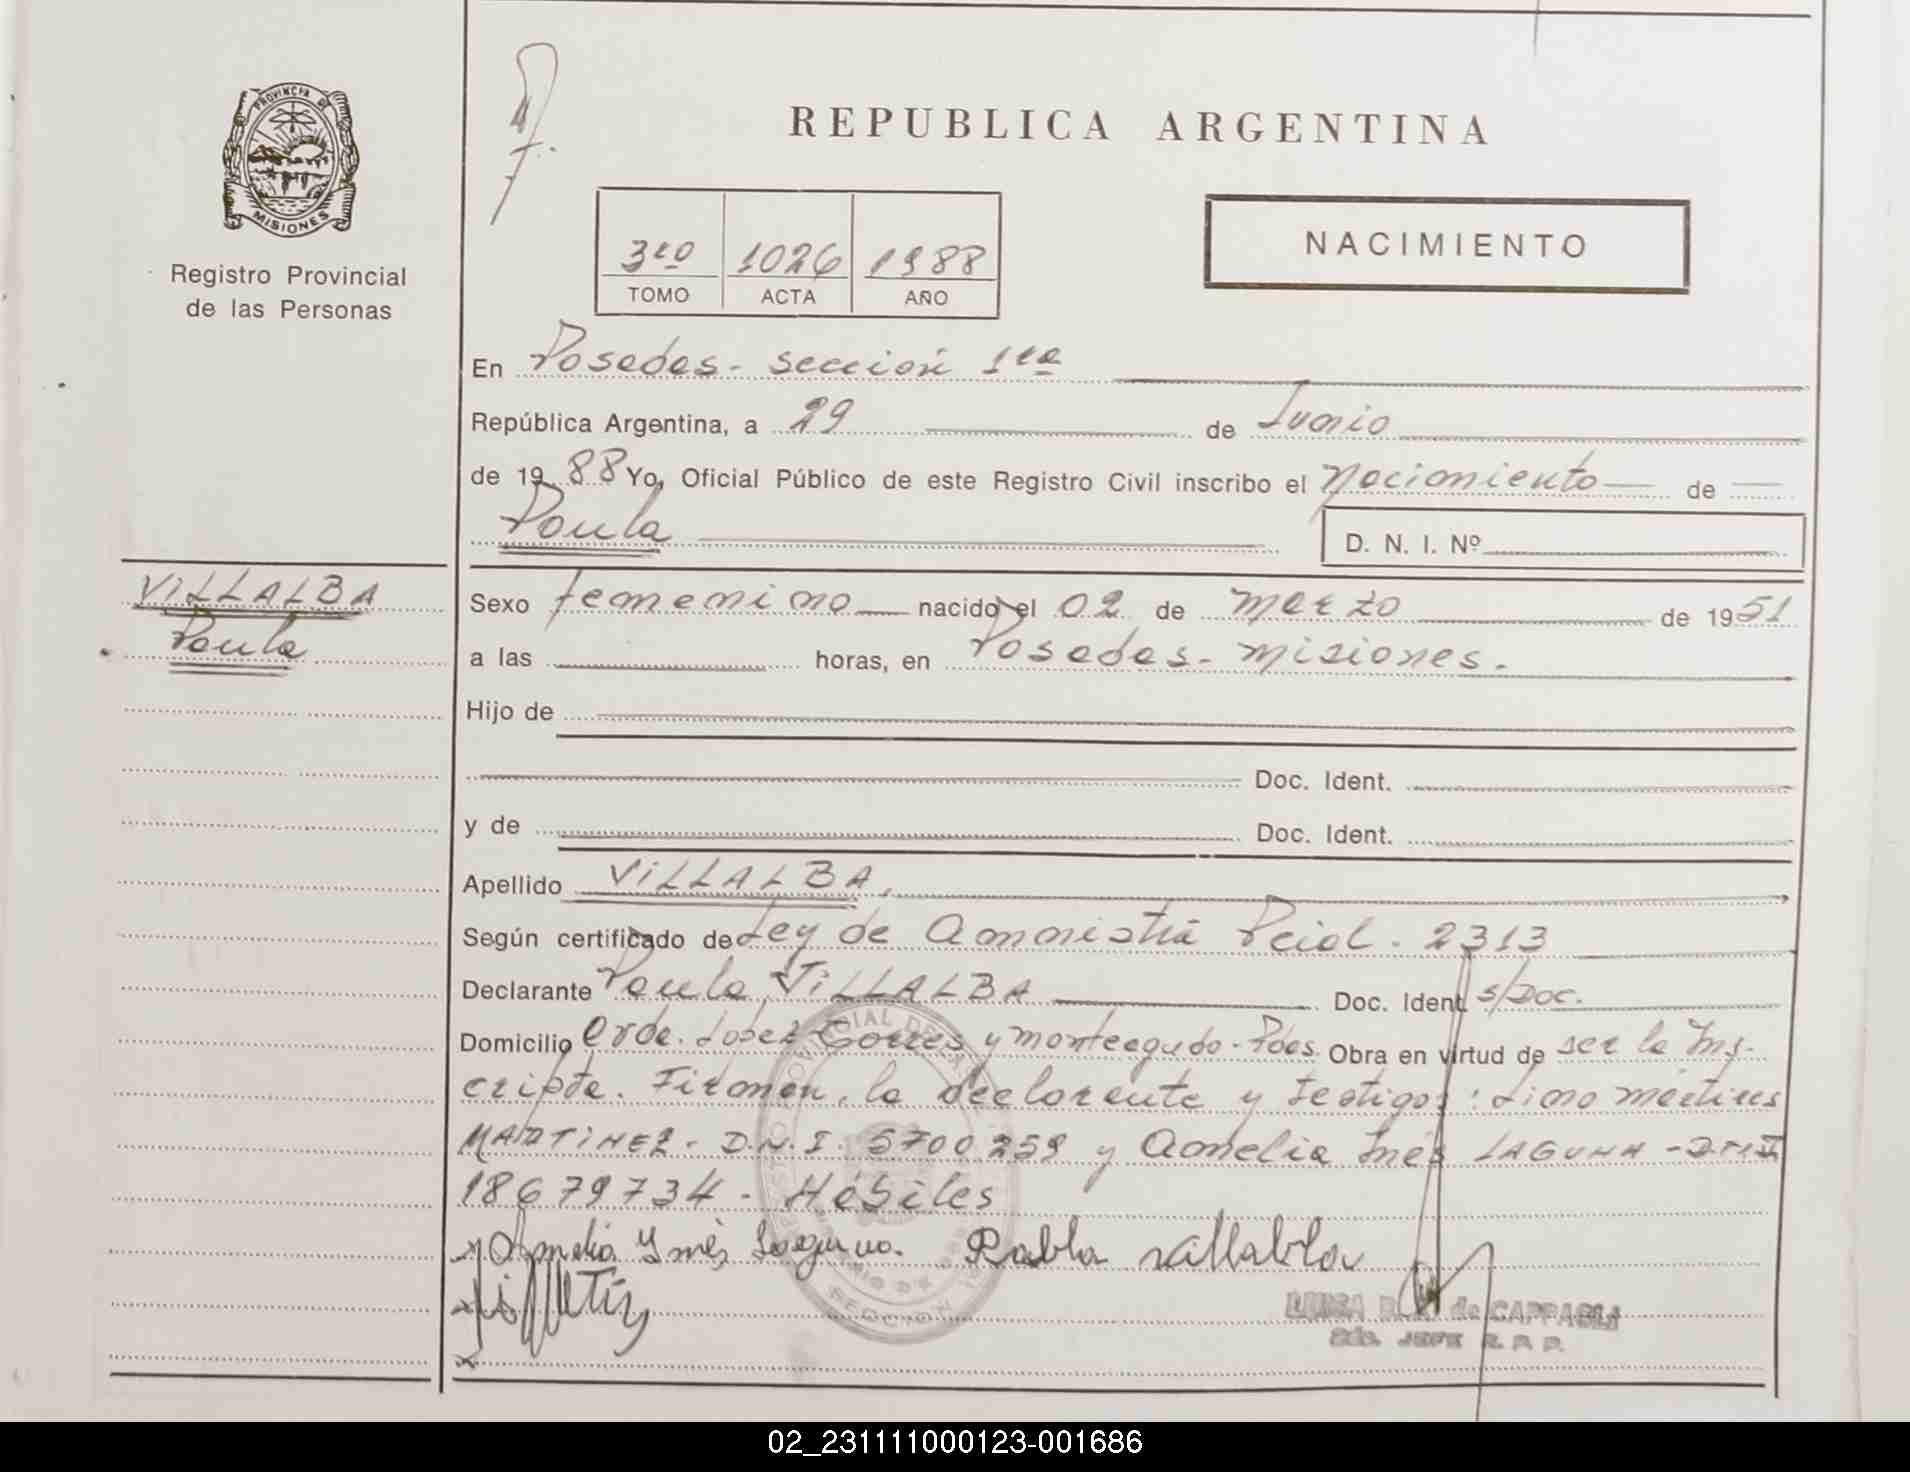 PROVINCIA DE
MISIONES
Registro Provincial
de las Personas
REPUBLICA ARGENTINA
3ro 1026 1988
TOMO ACTA AÑO
NACIMIENTO
En Posadas - sección 1ra
República Argentina, a 29 de Junio
de 1988 Yo, Oficial Público de este Registro Civil inscribo el Nacimiento de
Paula
D. N. I. Nº
VILLALBA
Paula
Sexo femenino nacido el 02 de marzo de 1951
a las horas, en Posadas - misiones.
Hijo de
Doc. Ident.
y de Doc. Ident.
Apellido VILLALBA,
Según certificado de Ley de Amnistía Pcial. 2313
Declarante Paula VILLALBA Doc. Ident. s/Doc.
Domicilio Avda. López Torres y monteagudo - Pdas Obra en virtud de ser la Ins-
cripta. Firman, la declarante y testigos: Lino mártires
MARTINEZ - D.N.I. 5700259 y Amelia Inés LAGUNA - D.N.I
18679734 - Hábiles
Amelia Ynés Laguna. Pabla villabla
SECCION 1
LUISA de CAPPAGLI
2do. JEFE R. P. P.
02_231111000123-001686